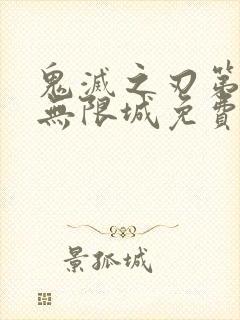 鬼滅之刃第
無限城免費
景孤城